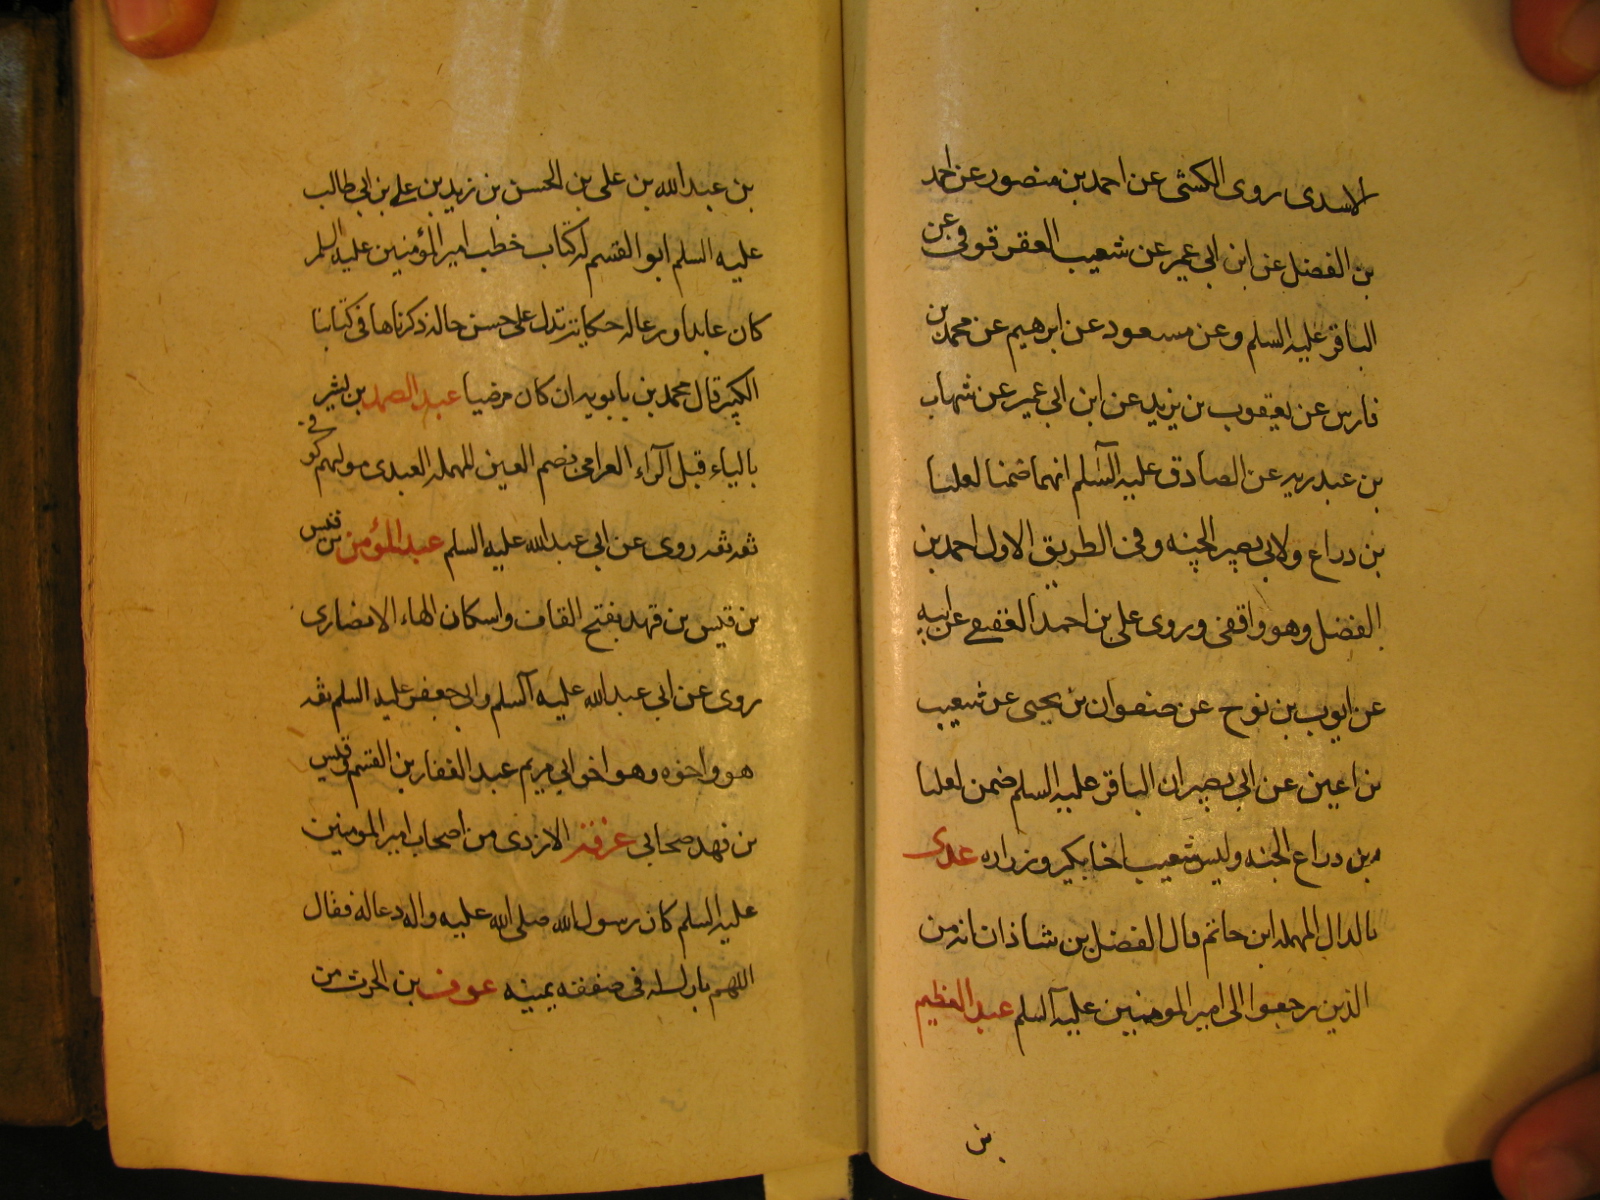 الاسدى روى الكشى عن احمد بن منصور عن احمد
بن الفضل عن ابن ابى عمير عن شعيب العقرقوفى عن
الباقر عليه السلم وعن مسعود عن ابرهيم عن محمد بن
فارس عن يعقوب بن يزيد عن ابن ابى عمير عن شهاب
بن عبد ربه عن الصادق عليه السلم انهما ضمنا لعلبا
بن دراع ولابى بصير الجنه وفى الطريق الاول احمد بن
الفضل وهو واقفى وروى على بن احمد العقيقى عن ابيه
عن ايوب بن نوح عن صفوان بن يحيى عن شعيب
بن اعين عن ابى بصير ان الباقر عليه السلم ضمن لعلبا
بن دراع الجنه وليس شعيب اخا بكير وزراره عدى
بالدال المهمله ابن حاتم قال الفضل بن شاذان انه من
الذين رجعوا الى امير المومنين عليه السلم عبد العظيم
بن
بن عبد الله بن على بن الحسن بن زيد بن على بن ابى طالب
عليه السلم ابو القسم له كتاب خطب امير المؤمنين عليه السلم
كان عابدا ورعا له حكاية تدل على حسن حاله ذكرناها فى كتابنا
الكبير قال محمد بن بابويه ان كان مرضيا عبد الصمد بن بشير
بالياء قبل الراء العرامى بضم العين المهمله العبدى مولهم كوفى
ثقه ثقه روى عن ابى عبد الله عليه السلم عبد المؤمن بن قيس
بن قيس بن قهد بفتح القاف واسكان الهاء الانصارى
روى عن ابى عبد الله عليه السلم وابى جعفر عليه السلم ثقه
هو واخوه وهو اخو ابى مريم عبد الغفار بن القسم وقيس
بن فهد صحابى عرفة الازدى من اصحاب امير المومنين
عليه السلم كان رسول الله صلى الله عليه واله دعا له فقال
اللهم بارك له فى صفقه يمينه عوف بن الحرث من